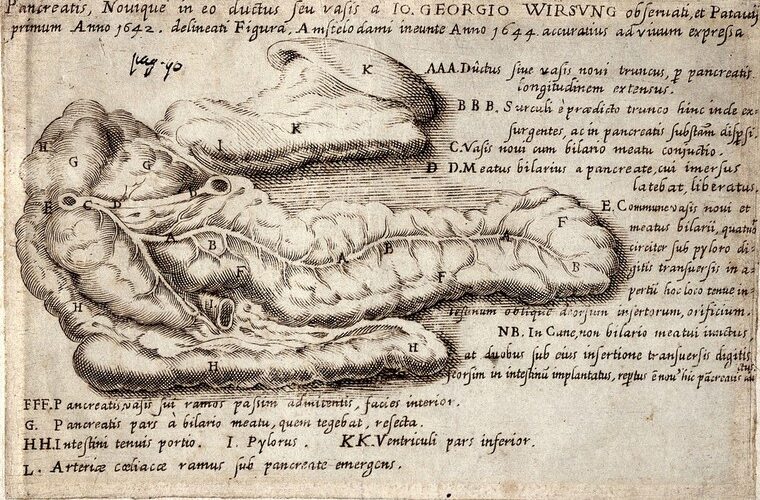 Pancreatis, Novique in eo ductus seu vasis a IO. GEORGIO WIRSVNG observati, et Patavij
primum Anno 1642. delineati Figura, Amstelodami ineunte Anno 1644 accuratius ad vivum expressa
pag. 90
AAA. Ductus sive vasis novi truncus, p pancreatis
longitudinem extensus.
BBB. Surculi è prædicto trunco hinc inde ex-
surgentes, ac in pancreatis substam dispsi.
C. Vasis novi cum bilario meatu coniuctio.
D D. Meatus bilarius a pancreate, cui imersus
latebat, liberatus.
E. Commune vasis novi et
meatus bilarii, quatuor
circiter sub pyloro di-
gitis transversis in a-
pertii hoc loco tenue in-
testinum oblique deorsum insertorum, orificium.
NB. In Cane, non bilario meatui iunctus,
at duobus sub eius insertione transversis digitis
seorsim in intestinu implantatus, reptus
FFF. Pancreatis, vasis sui ramos passim admittentis, facies interior.
G. Pancreatis pars à bilario meatu, quem tegebat, resecta.
HH. Intestini tenuis portio. I. Pylorus. KK. Ventriculi pars inferior.
L. Arteriæ cœliacæ ramus sub pancreate emergens.
K
K
I
H
G
G
E
C
D
D
A
B
F
A
B
F
A
F
B
L
H
H
H